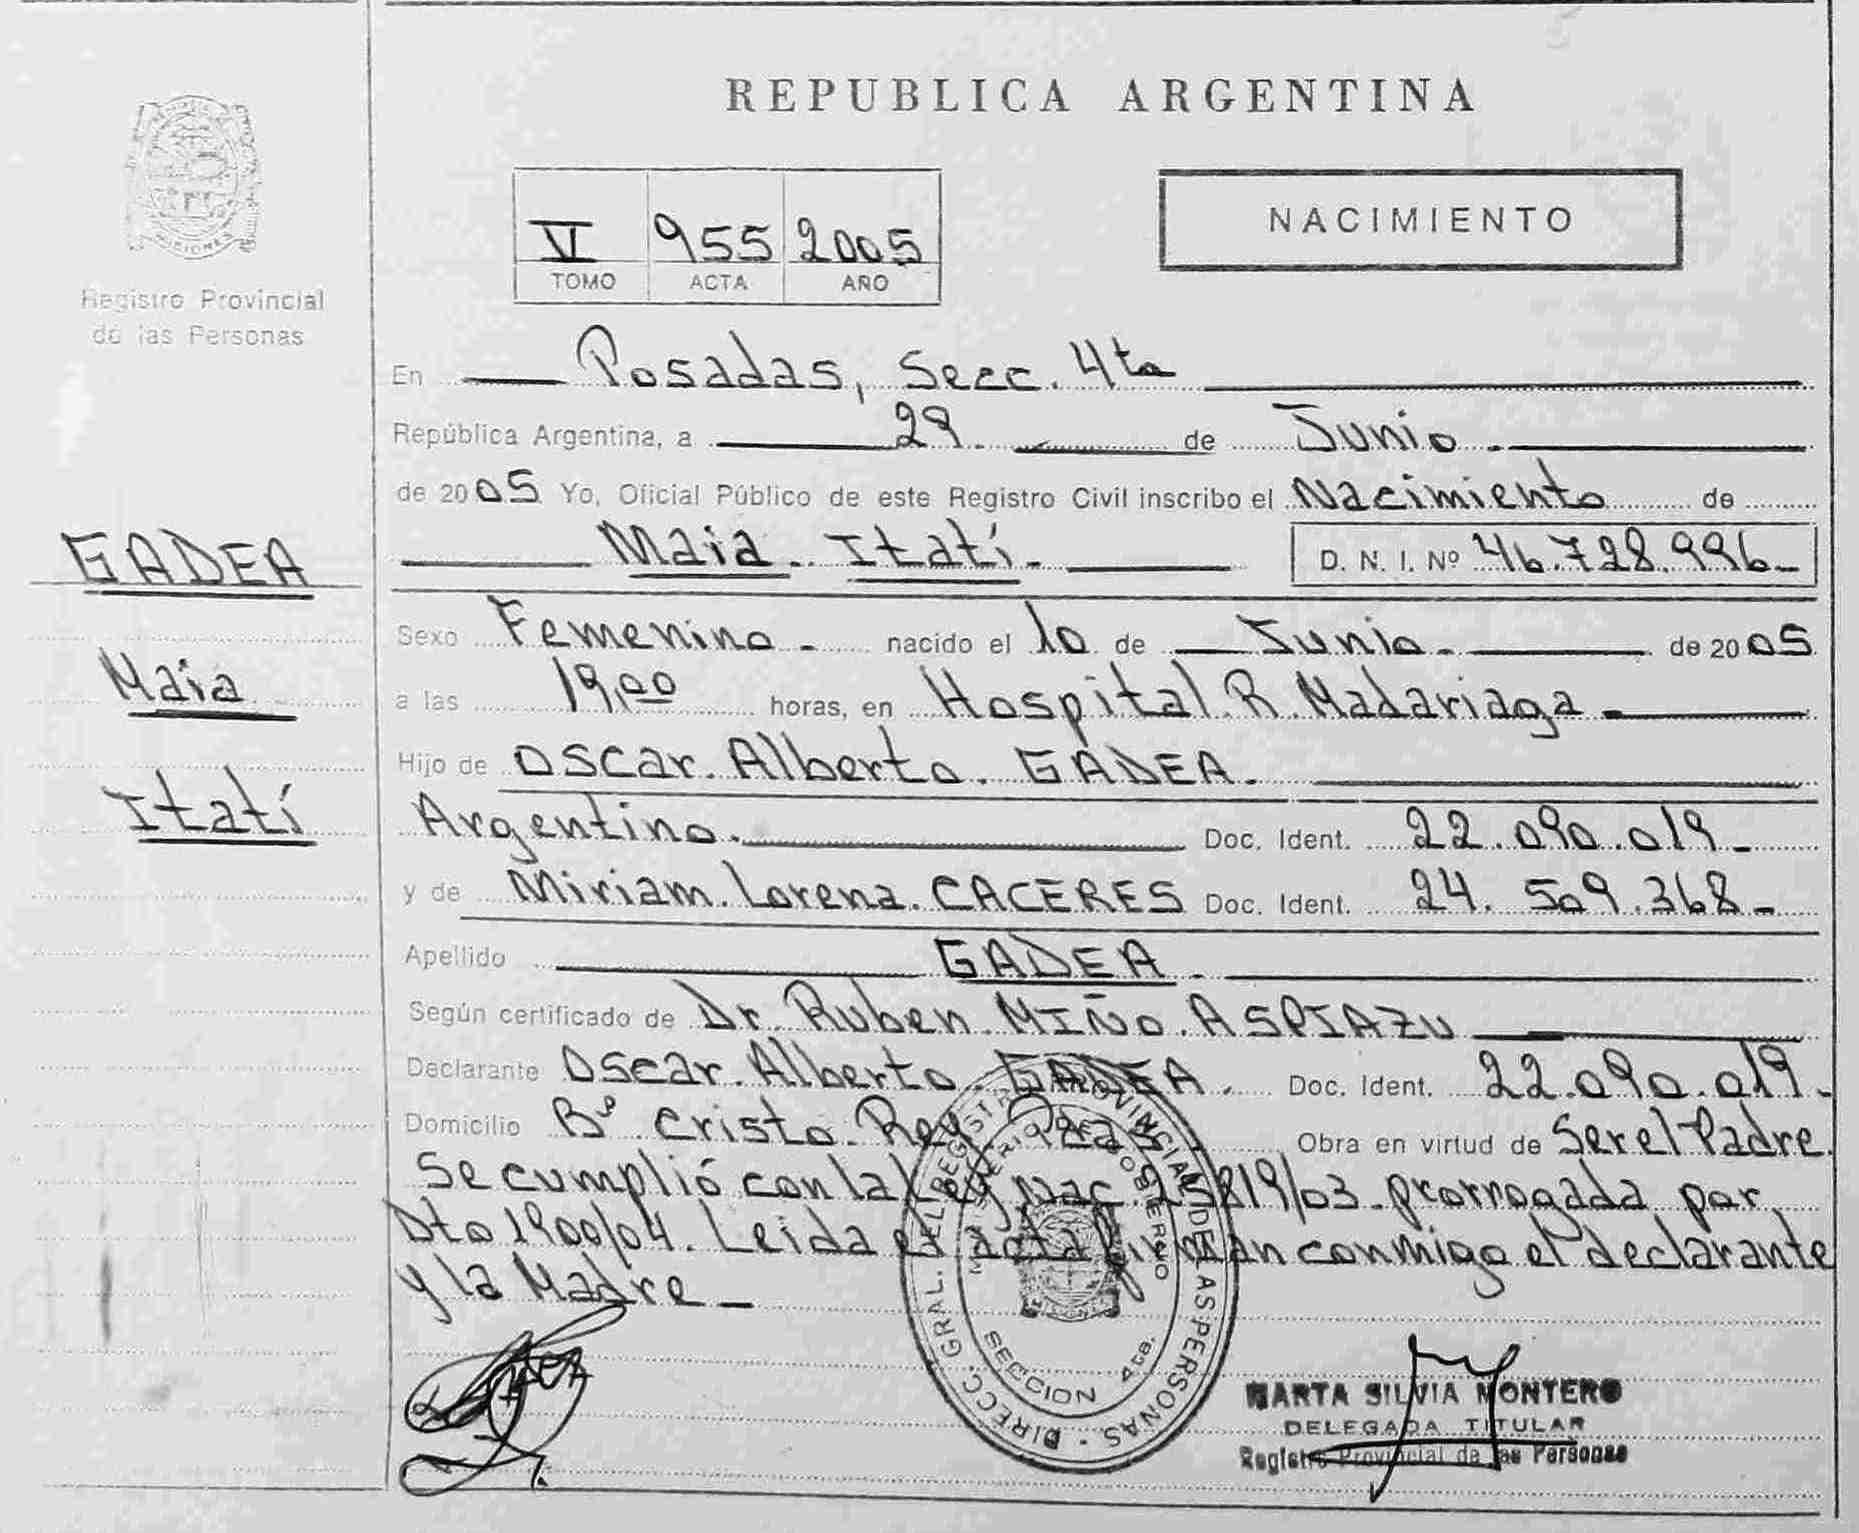 REPUBLICA ARGENTINA
MISIONES
Registro Provincial
de las Personas
VI 955 2005
TOMO ACTA AÑO
NACIMIENTO
En Posadas, Secc. 4ta
República Argentina, a 29 de Junio
de 2005 Yo, Oficial Público de este Registro Civil inscribo el Nacimiento de
Maia Itatí D. N. I. Nº 46.728.996
GADEA
Maia
Itatí
Sexo Femenino nacido el 10 de Junio de 2005
a las 19,00 horas, en Hospital R. Madariaga
Hijo de Oscar Alberto GADEA
Argentino Doc. Ident. 22.090.019
y de Miriam Lorena CACERES Doc. Ident. 24.509.368
Apellido GADEA
Según certificado de Dr. Ruben MIÑO ASPIAZU
Declarante Oscar Alberto GADEA Doc. Ident. 22.090.019
Domicilio Bº Cristo Rey Pdas Obra en virtud de Ser el Padre
Se cumplió con la Ley Nac. 25819/03 prorrogada por
Dto 1900/04. Leida el acta firman conmigo el declarante
y la Madre
DIRECC. GRAL. DEL REGISTRO PROVINCIAL DE LAS PERSONAS
MINISTERIO DE GOBIERNO
SECCION 4ta.
MARTA SILVIA MONTERO
DELEGADA TITULAR
Registro Provincial de las Personas